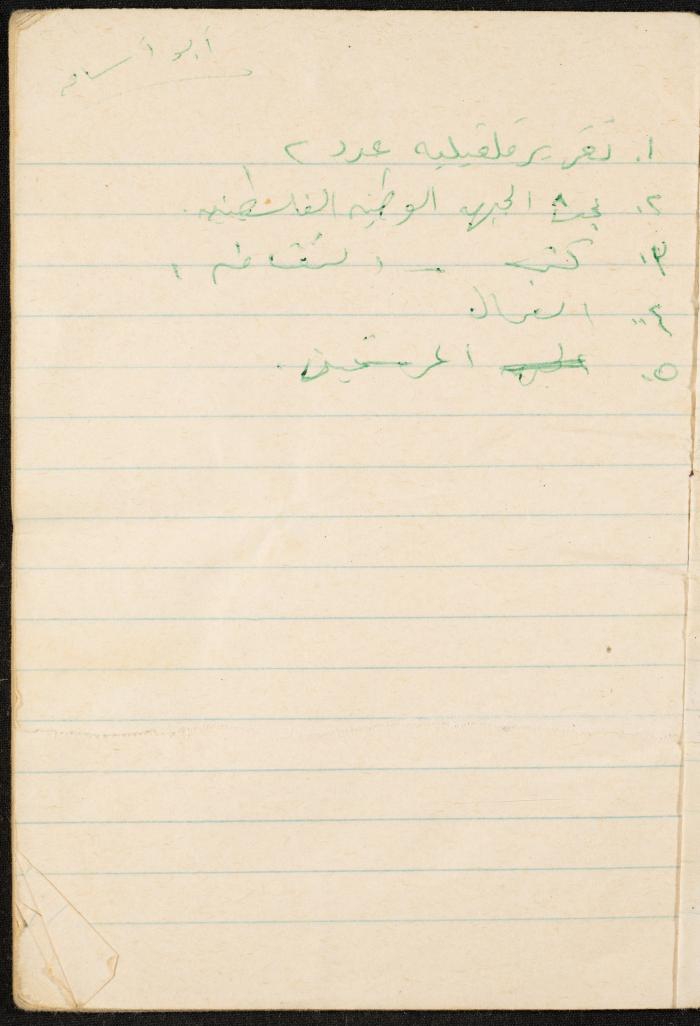 أبو أسامه
١. تقرير قلقيليه عدد ٢
٢. بحث الجبهه الوطنيه الفلسطينيه.
٣. كتب - الثقافه
٤. العمال
٥.